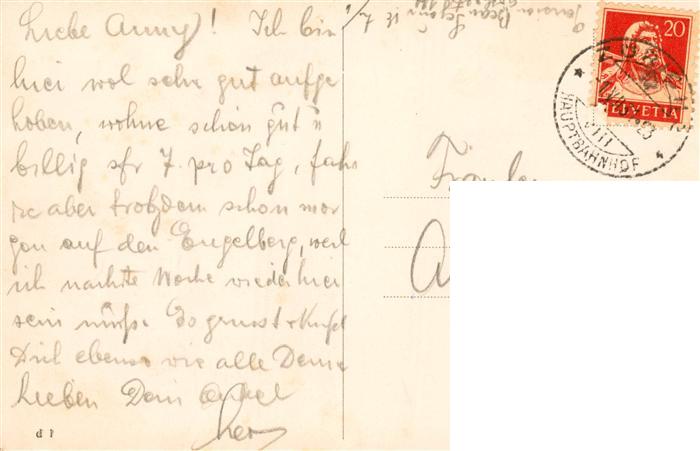 Liebe Anny! Ich bin
hier wol sehr gut aufge
hoben, wohne schön gut u
billig sfr 7. pro Tag, fah
re aber trotzdem schon mor
gen auf den Engelberg, weil
ich nächste Woche wieder hier
sein muß. Es grüsst & küßt
Dich ebenso wie alle Deine
Lieben Dein Onkel
Pension
Fräulein
A
20
HELVETIA
HAUPTBAHNHOF
VIII